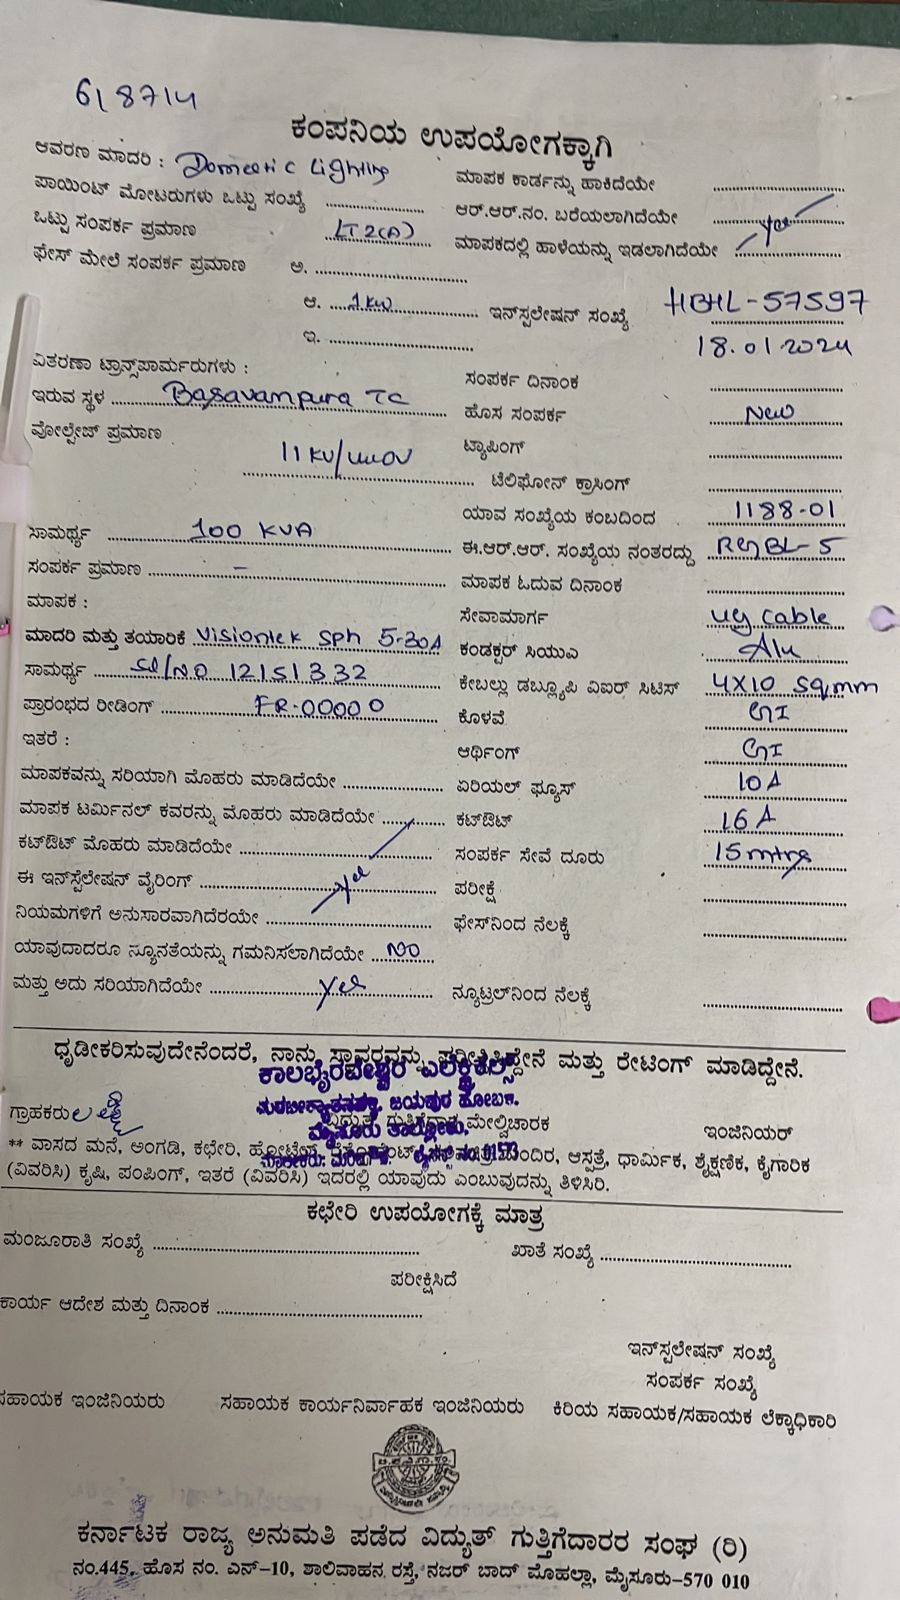 6/8714
ಕಂಪನಿಯ ಉಪಯೋಗಕ್ಕಾಗಿ
ಆವರಣ ಮಾದರಿ : Domestic Lighting
ಮಾಪಕ ಕಾರ್ಡನ್ನು ಹಾಕಿದೆಯೇ
ಪಾಯಿಂಟ್ ಮೋಟರುಗಳು ಒಟ್ಟು ಸಂಖ್ಯೆ
ಆರ್.ಆರ್.ನಂ. ಬರೆಯಲಾಗಿದೆಯೇ yes
ಒಟ್ಟು ಸಂಪರ್ಕ ಪ್ರಮಾಣ LT2(A)
ಮಾಪಕದಲ್ಲಿ ಹಾಳೆಯನ್ನು ಇಡಲಾಗಿದೆಯೇ
ಫೇಸ್ ಮೇಲೆ ಸಂಪರ್ಕ ಪ್ರಮಾಣ ಅ.
ಆ. 1KW ಇನ್‌ಸ್ಪಲೇಷನ್ ಸಂಖ್ಯೆ HBHL-57597
ಇ. 18.01.2024
ವಿತರಣಾ ಟ್ರಾನ್ಸ್‌ಪಾರ್ಮರುಗಳು :
ಸಂಪರ್ಕ ದಿನಾಂಕ
ಇರುವ ಸ್ಥಳ Basavanpura TC
ಹೊಸ ಸಂಪರ್ಕ New
ವೋಲ್ಟೇಜ್ ಪ್ರಮಾಣ 11KV/440V
ಟ್ಯಾಪಿಂಗ್
ಟೆಲಿಫೋನ್ ಕ್ರಾಸಿಂಗ್
ಯಾವ ಸಂಖ್ಯೆಯ ಕಂಬದಿಂದ 1188-01
ಸಾಮರ್ಥ್ಯ 100 KVA
ಈ.ಆರ್.ಆರ್. ಸಂಖ್ಯೆಯ ನಂತರದ್ದು RGBL-5
ಸಂಪರ್ಕ ಪ್ರಮಾಣ –
ಮಾಪಕ ಓದುವ ದಿನಾಂಕ
ಮಾಪಕ :
ಸೇವಾಮಾರ್ಗ ug cable
ಮಾದರಿ ಮತ್ತು ತಯಾರಿಕೆ Visiontek sph 5-30A
ಕಂಡಕ್ಟರ್ ಸಿಯುವಿ Alu
ಸಾಮರ್ಥ್ಯ Sl/NO 12151332
ಕೇಬಲ್ಲು ಡಬ್ಲ್ಯೂಪಿ ವಿಐರ್ ಸಿಟಿಸ್ 4X10 sqmm
ಪ್ರಾರಂಭದ ರೀಡಿಂಗ್ FR-00000
ಕೊಳವೆ GI
ಇತರೆ :
ಆರ್ಥಿಂಗ್ GI
ಮಾಪಕವನ್ನು ಸರಿಯಾಗಿ ಮೊಹರು ಮಾಡಿದೆಯೇ
ಏರಿಯಲ್ ಫ್ಯೂಸ್ 10A
ಮಾಪಕ ಟರ್ಮಿನಲ್ ಕವರನ್ನು ಮೊಹರು ಮಾಡಿದೆಯೇ
ಕಟ್‌ಔಟ್ 16A
ಕಟ್‌ಔಟ್ ಮೊಹರು ಮಾಡಿದೆಯೇ
ಸಂಪರ್ಕ ಸೇವೆ ದೂರು 15mtrs
ಈ ಇನ್‌ಸ್ಪೆಲೇಷನ್ ವೈರಿಂಗ್ yes
ಪರೀಕ್ಷೆ
ನಿಯಮಗಳಿಗೆ ಅನುಸಾರವಾಗಿದೆರಯೇ
ಫೇಸ್‌ನಿಂದ ನೆಲಕ್ಕೆ
ಯಾವುದಾದರೂ ನ್ಯೂನತೆಯನ್ನು ಗಮನಿಸಲಾಗಿದೆಯೇ NO
ಮತ್ತು ಅದು ಸರಿಯಾಗಿದೆಯೇ yes
ನ್ಯೂಟ್ರಲ್‌ನಿಂದ ನೆಲಕ್ಕೆ
ಧೃಡೀಕರಿಸುವುದೇನೆಂದರೆ, ನಾನು ಸ್ಥಾವರವನ್ನು ಪರೀಕ್ಷಿಸಿದ್ದೇನೆ ಮತ್ತು ರೇಟಿಂಗ್ ಮಾಡಿದ್ದೇನೆ.
ಕಾಲಭೈರವೇಶ್ವರ ಎಲೆಕ್ಟ್ರಿಕಲ್ಸ್
ಜಯಪುರ ಹೋಬಳಿ.
ಗ್ರಾಹಕರು ವಿದ್ಯುತ್ ಗುತ್ತಿಗೆದಾರ ಮೇಲ್ವಿಚಾರಕ ಇಂಜಿನಿಯರ್
ಮೈಸೂರು ತಾಲ್ಲೂಕು.
** ವಾಸದ ಮನೆ, ಅಂಗಡಿ, ಕಛೇರಿ, ಹೋಟೆಲ್, ಆಸ್ಪತ್ರೆ, ಧಾರ್ಮಿಕ, ಶೈಕ್ಷಣಿಕ, ಕೈಗಾರಿಕ
(ವಿವರಿಸಿ) ಕೃಷಿ, ಪಂಪಿಂಗ್, ಇತರೆ (ವಿವರಿಸಿ) ಇದರಲ್ಲಿ ಯಾವುದು ಎಂಬುವುದನ್ನು ತಿಳಿಸಿರಿ.
ಕಛೇರಿ ಉಪಯೋಗಕ್ಕೆ ಮಾತ್ರ
ಮಂಜೂರಾತಿ ಸಂಖ್ಯೆ ಖಾತೆ ಸಂಖ್ಯೆ
ಪರೀಕ್ಷಿಸಿದೆ
ಕಾರ್ಯ ಆದೇಶ ಮತ್ತು ದಿನಾಂಕ
ಇನ್‌ಸ್ಪಲೇಷನ್ ಸಂಖ್ಯೆ
ಸಂಪರ್ಕ ಸಂಖ್ಯೆ
ಸಹಾಯಕ ಇಂಜಿನಿಯರು ಸಹಾಯಕ ಕಾರ್ಯನಿರ್ವಾಹಕ ಇಂಜಿನಿಯರು ಕಿರಿಯ ಸಹಾಯಕ/ಸಹಾಯಕ ಲೆಕ್ಕಾಧಿಕಾರಿ
ಕರ್ನಾಟಕ ರಾಜ್ಯ ಅನುಮತಿ ಪಡೆದ ವಿದ್ಯುತ್ ಗುತ್ತಿಗೆದಾರರ ಸಂಘ (ರಿ)
ನಂ.445, ಹೊಸ ನಂ. ಎನ್–10, ಶಾಲಿವಾಹನ ರಸ್ತೆ, ನಜರ್ ಬಾದ್ ಮೊಹಲ್ಲಾ, ಮೈಸೂರು–570 010